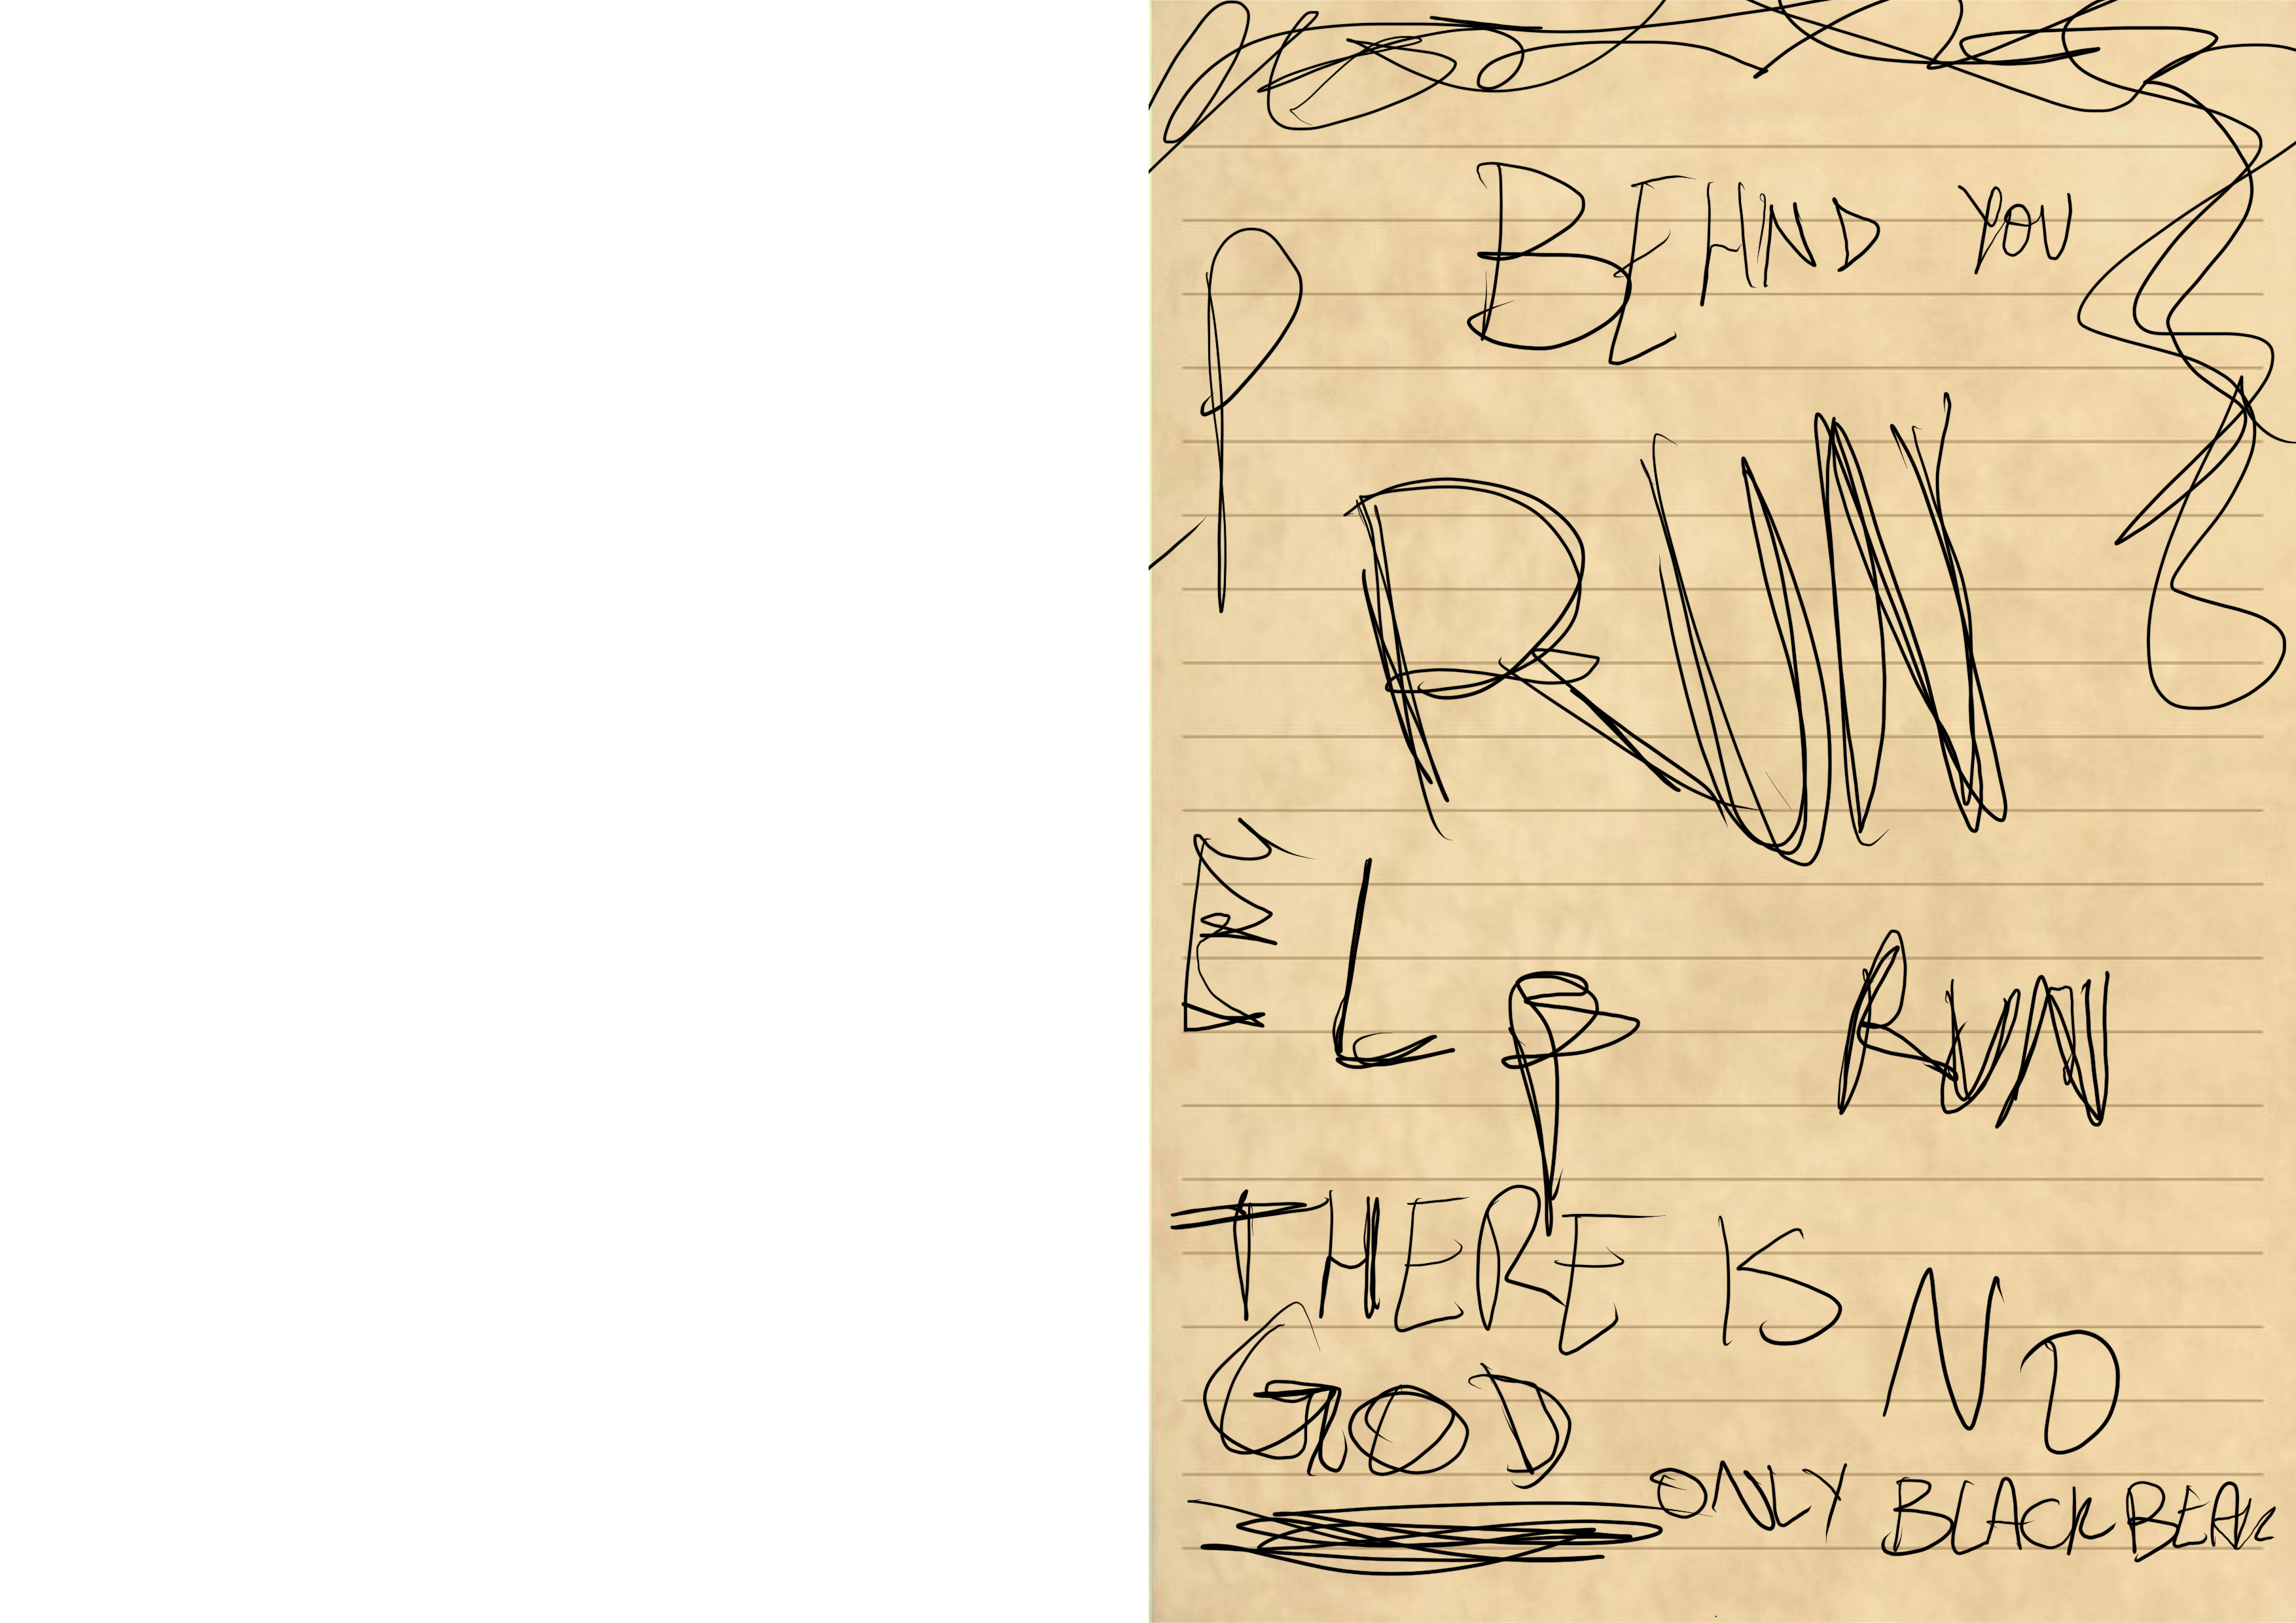 BEHIND YOU
P
RUN
ELP RUN
THERE IS NO
GOD
ONLY BLACKBEAK